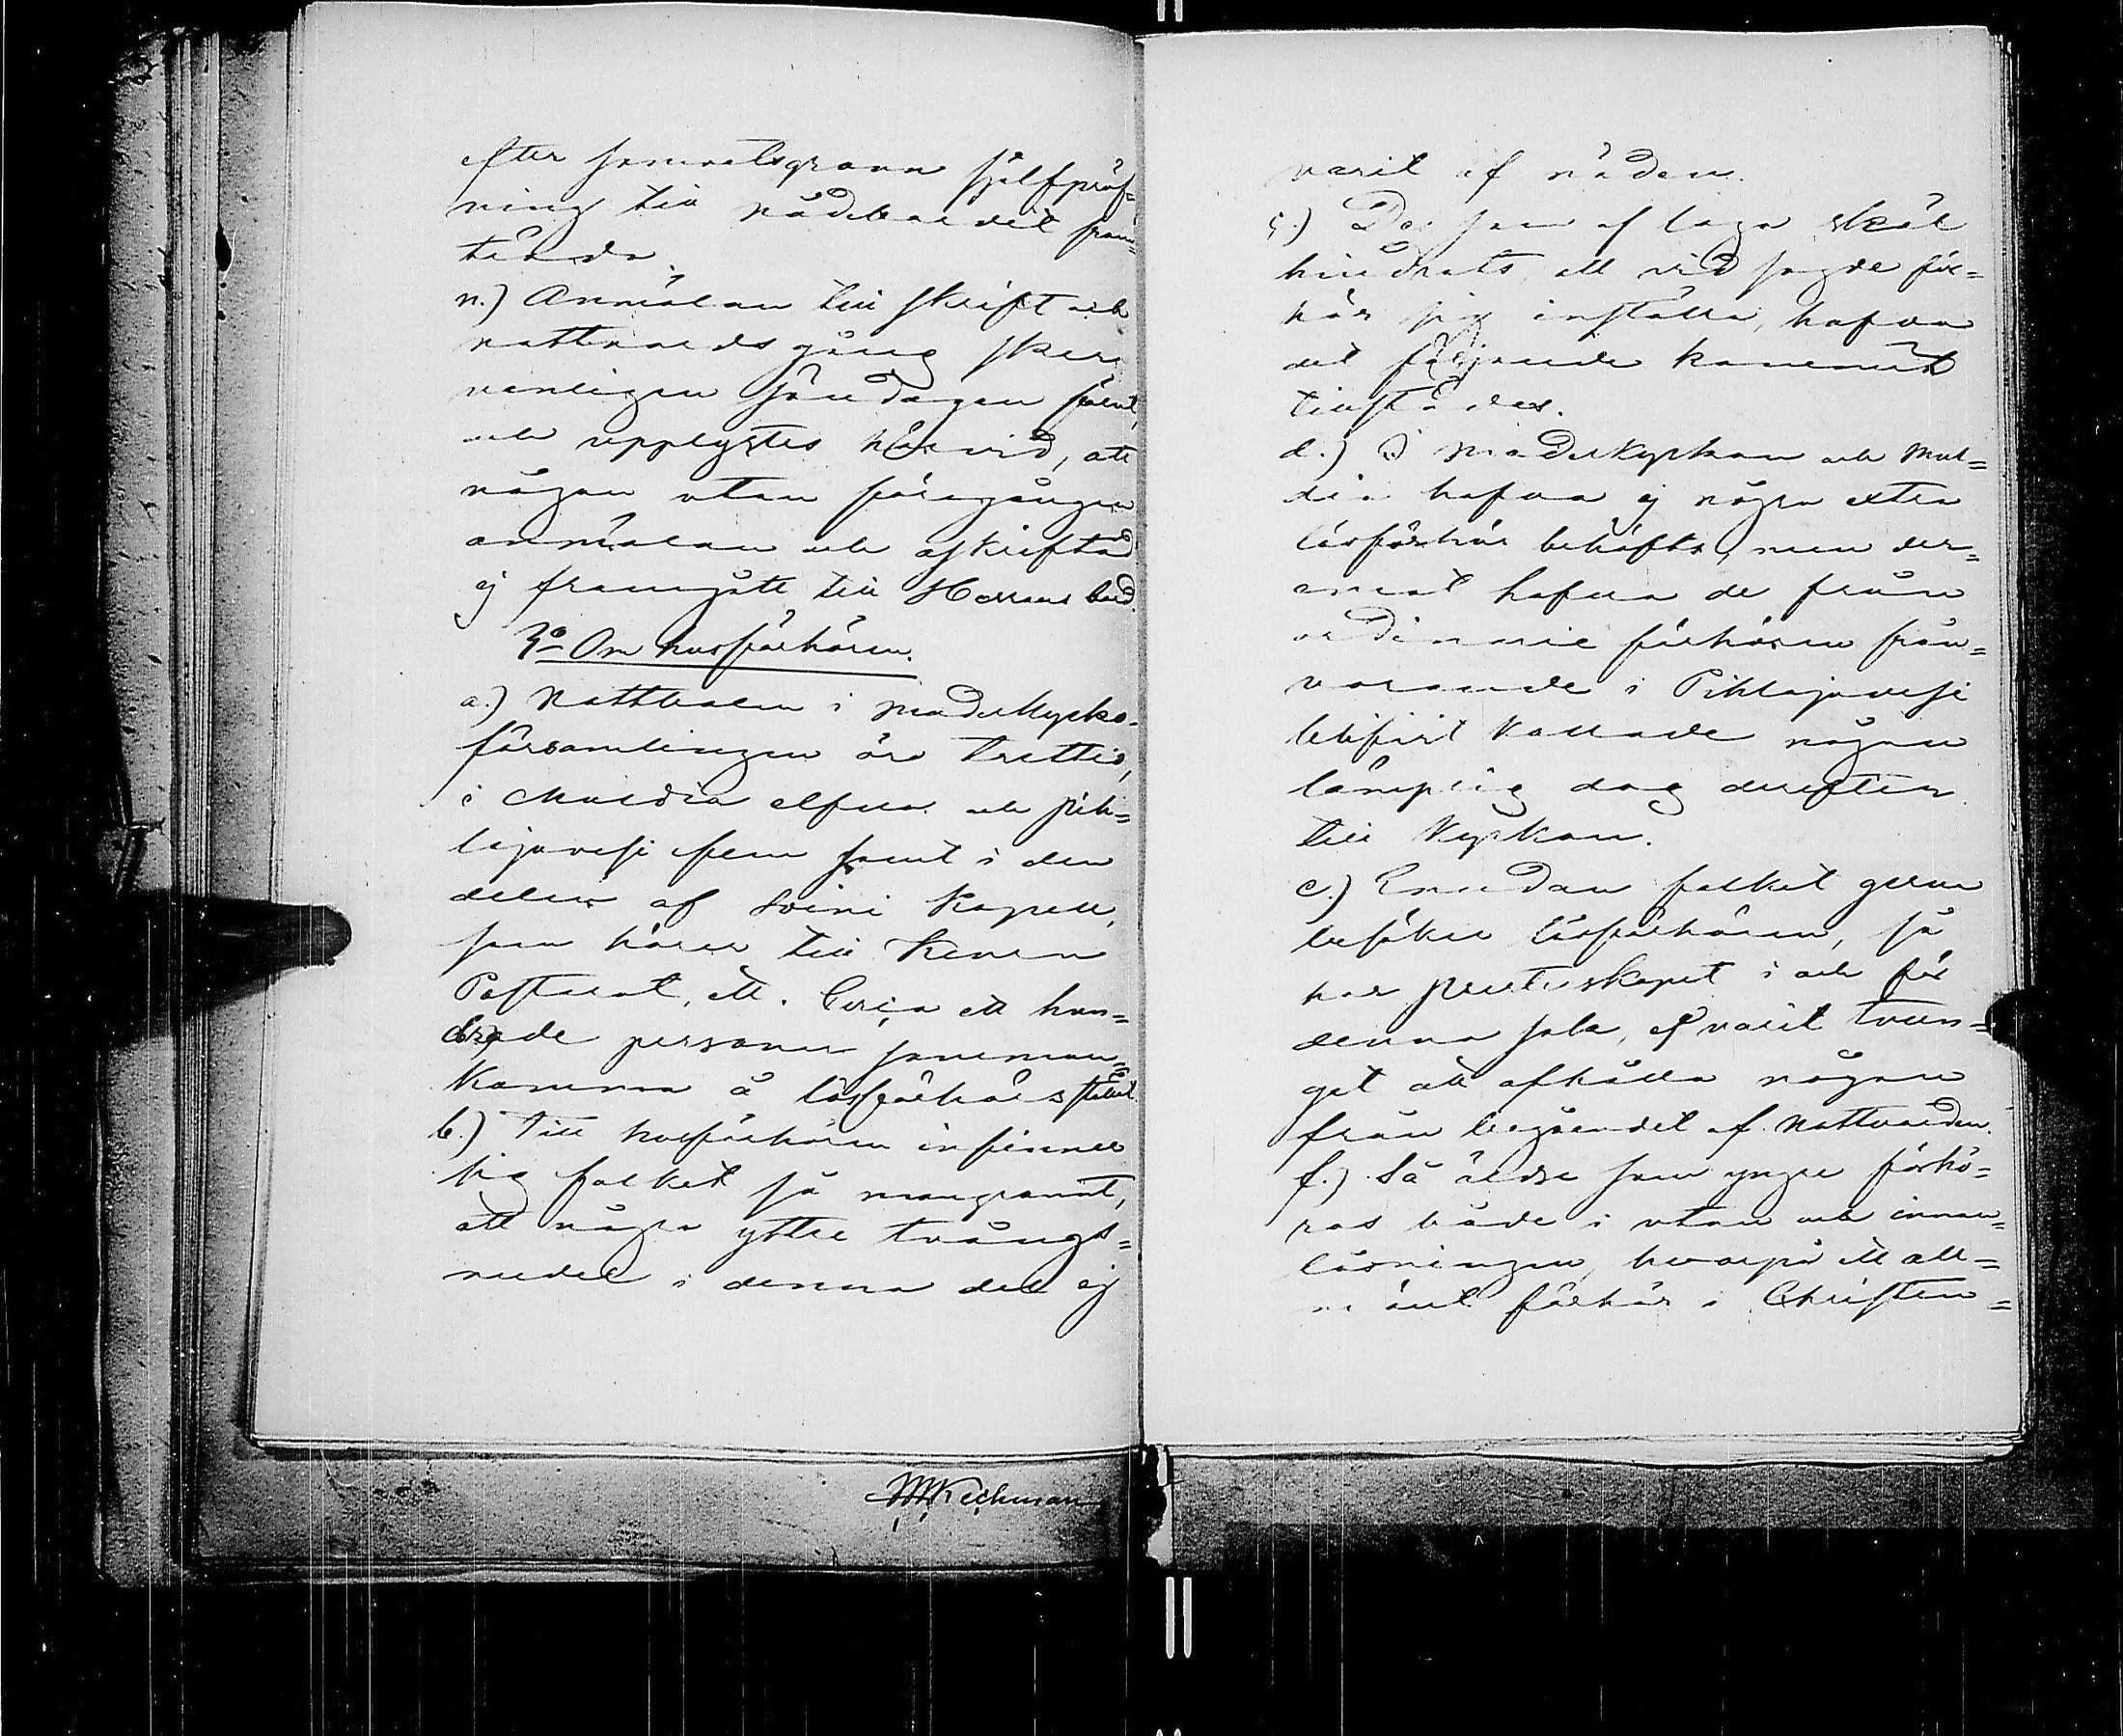 efter samvetsgrann sjelfpröf=
ning till nådebordet fram=
träda.
n.) Anmälan till skrift och
nattvardsgång sker
vanligen Söndagen förut,
och upplystes härvid, att
någon utan föregången
anmälan och afskriftad
ej framgått till Herrans bord.
3o Om husförhören.
a.) Nattbolen i moderkyrko-
församlingen äro trettio,
i Muldia elfva och Pih=
lajavesi fem samt i den
delen af Soini Kapell,
som hörer till Keuru
Pastorat, ett. Circa ett hun=
drade personer samman=
komma å läsförhörsstället.
b.) Till husförhören infinner
sig folket så mangrannt,
att några yttre tvångs=
medel i denna del ej
varit af nöden.
c.) De som af laga skäl
hindrats, att vid sagde för=
hör sig inställa, hafva
det följande
tillstädes.
d.) I moderkyrkan och Mul=
dia hafva ej några extra
läsförhör behöfts, men der=
emot hafva de från
ordinarie förhören från=
varande i Pihlajavesi
blifvit kallade någon
lämplig dag derefter
till Kyrkan.
e.) Emedan folket gerna
besöker läsförhören, så
har presterskapet i och för
denna sak, ej varit tvun=
get att afhålla någon
från begåendet af Nattvarden.
f.) Så äldre som yngre förhö=
ras både i utan och innan=
läsningen, hvarpå ett all=
mänt förhör i Christen=